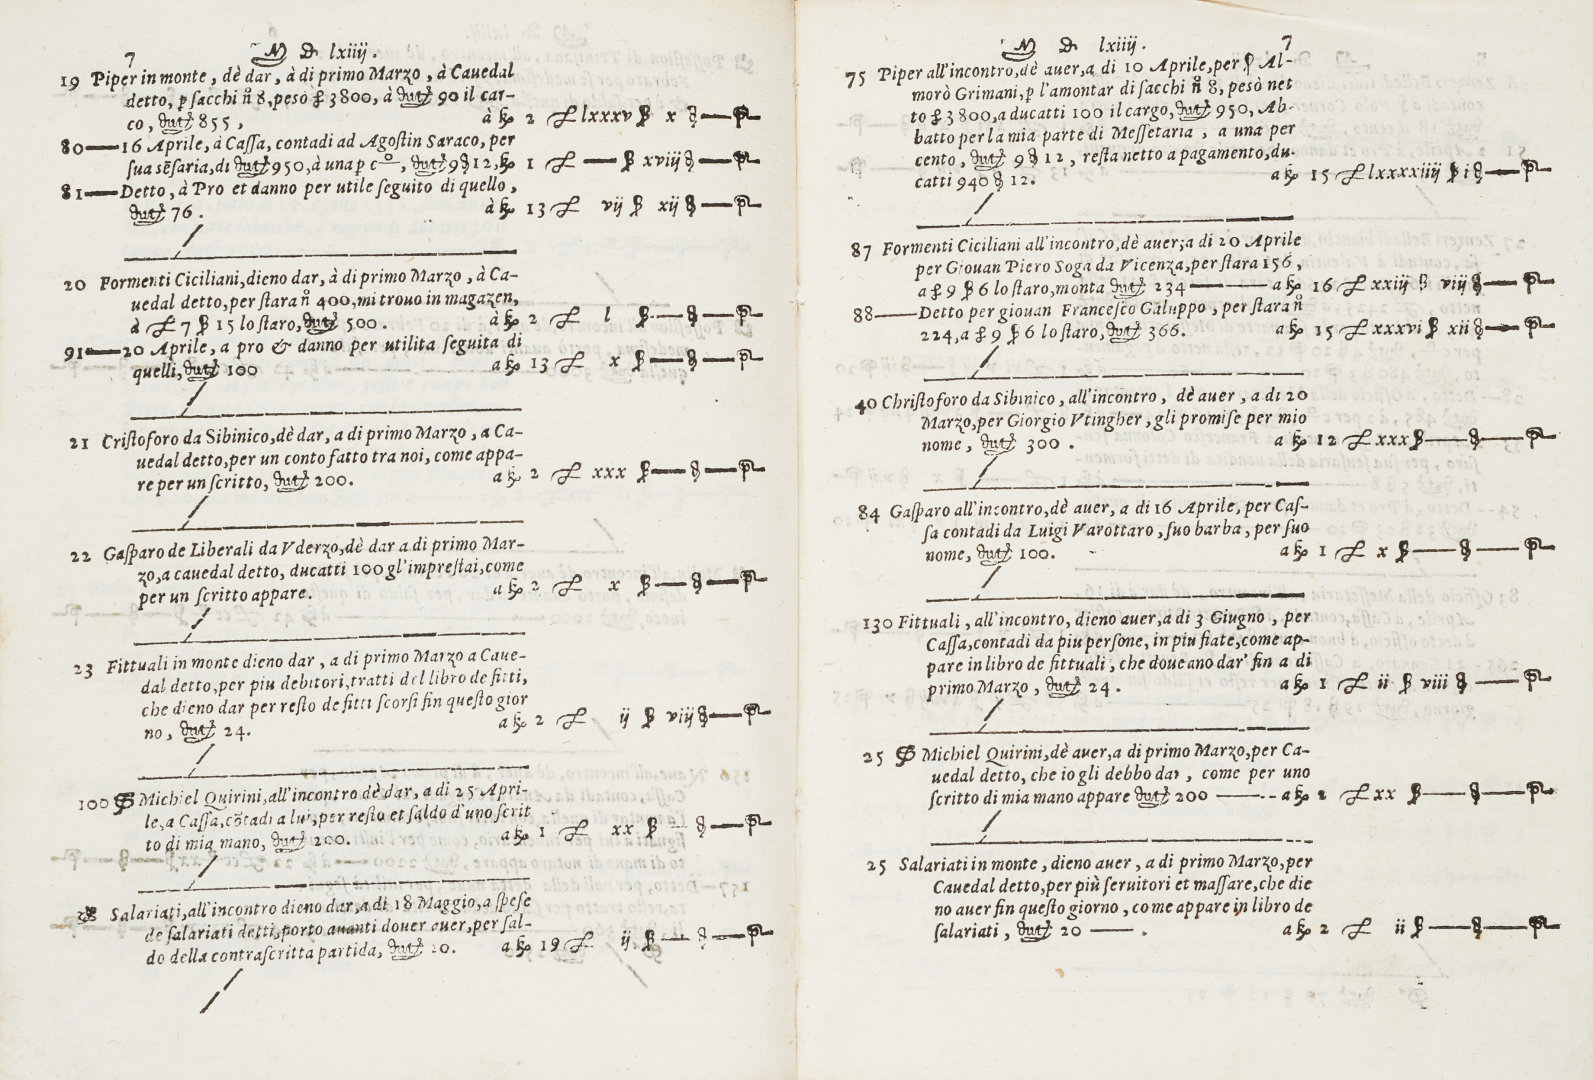 7 M D lxiiij.
19 Piper in monte, dè dar, à di primo Marzo, à Cauedal
detto, p sacchi n° 8, pesò £ 3800, à dutti 90 il car-
co, dutti 855, à k 2 £ lxxxv β x
80—16 Aprile, à Cassa, contadi ad Agostin Saraco, per
sua sẽsaria, di dutti 950, à una p c°, dutti 9 12, k 1 £ — β xviij
81—Detto, à Pro et danno per utile seguito di quello,
dutti 76. à k 13 £ vij β xij
20 Formenti Ciciliani, dieno dar, à di primo Marzo, à Ca-
uedal detto, per stara n° 400, mi trouo in magazen,
à £ 7 β 15 lo staro, dutti 500. à k 2 £ l β
91—20 Aprile, a pro & danno per utilita seguita di
quelli, dutti 100 a k 13 £ x β
21 Cristoforo da Sibinico, dè dar, a di primo Marzo, a Ca-
uedal detto, per un conto fatto tra noi, come appa-
re per un scritto, dutti 200. a k 2 £ xxx β
22 Gasparo de Liberali da Vderzo, dè dar a di primo Mar-
zo, a cauedal detto, ducatti 100 gl'imprestai, come
per un scritto appare. a k 2 £ x β
23 Fittuali in monte dieno dar, a di primo Marzo a Caue-
dal detto, per piu debitori, tratti del libro de fitti,
che dieno dar per resto de fitti scorsi fin questo gior
no, dutti 24. a k 2 £ ij β viij
100 S Michiel Quirini, all'incontro dè dar, a di 25 Apri-
le, a Cassa, cõtadi a lui, per resto et saldo d'uno scrit
to di mia mano, dutti 200. a k 1 £ xx β
Salariati, all'incontro dieno dar, a di 18 Maggio, a spese
de salariati detti, porto auanti douer auer, per sal-
do della contrascritta partida, dutti 20. a k 19 £ ij β
M D lxiiij. 7
75 Piper all'incontro, dè auer, a di 10 Aprile, per S Al-
morò Grimani, p l'amontar di sacchi n° 8, pesò net
to £ 3800, a ducatti 100 il cargo, dutti 950, Ab-
batto per la mia parte di Messetaria, a una per
cento, dutti 9 12, resta netto a pagamento, du-
catti 940 12. a k 15 £ lxxxxiiij β i
87 Formenti Ciciliani all'incontro, dè auer; a di 20 Aprile
per Giouan Piero Soga da Vicenza, per stara 156,
a £ 9 β 6 lo staro, monta dutti 234 — a k 16 £ xxiij β viij
88—Detto per giouan Francesco Galuppo, per stara n°
224, a £ 9 β 6 lo staro, dutti 366. a k 15 £ xxxvi β xij
40 Christoforo da Sibinico, all'incontro, dè auer, a di 20
Marzo, per Giorgio Vtingher, gli promise per mio
nome, dutti 300. a k 12 £ xxx β
84 Gasparo all'incontro, dè auer, a di 16 Aprile, per Cas-
sa contadi da Luigi Varottaro, suo barba, per suo
nome, dutti 100. a k 1 £ x β
130 Fittuali, all'incontro, dieno auer, a di 3 Giugno, per
Cassa, contadi da piu persone, in piu fiate, come ap-
pare in libro de fittuali, che doueano dar' fin a di
primo Marzo, dutti 24. a k 1 £ ii β viii
25 S Michiel Quirini, dè auer, a di primo Marzo, per Ca-
uedal detto, che io gli debbo dar, come per uno
scritto di mia mano appare dutti 200 — a k 2 £ xx β
25 Salariati in monte, dieno auer, a di primo Marzo, per
Cauedal detto, per più seruitori et massare, che die
no auer fin questo giorno, come appare in libro de
salariati, dutti 20 —. a k 2 £ ii β